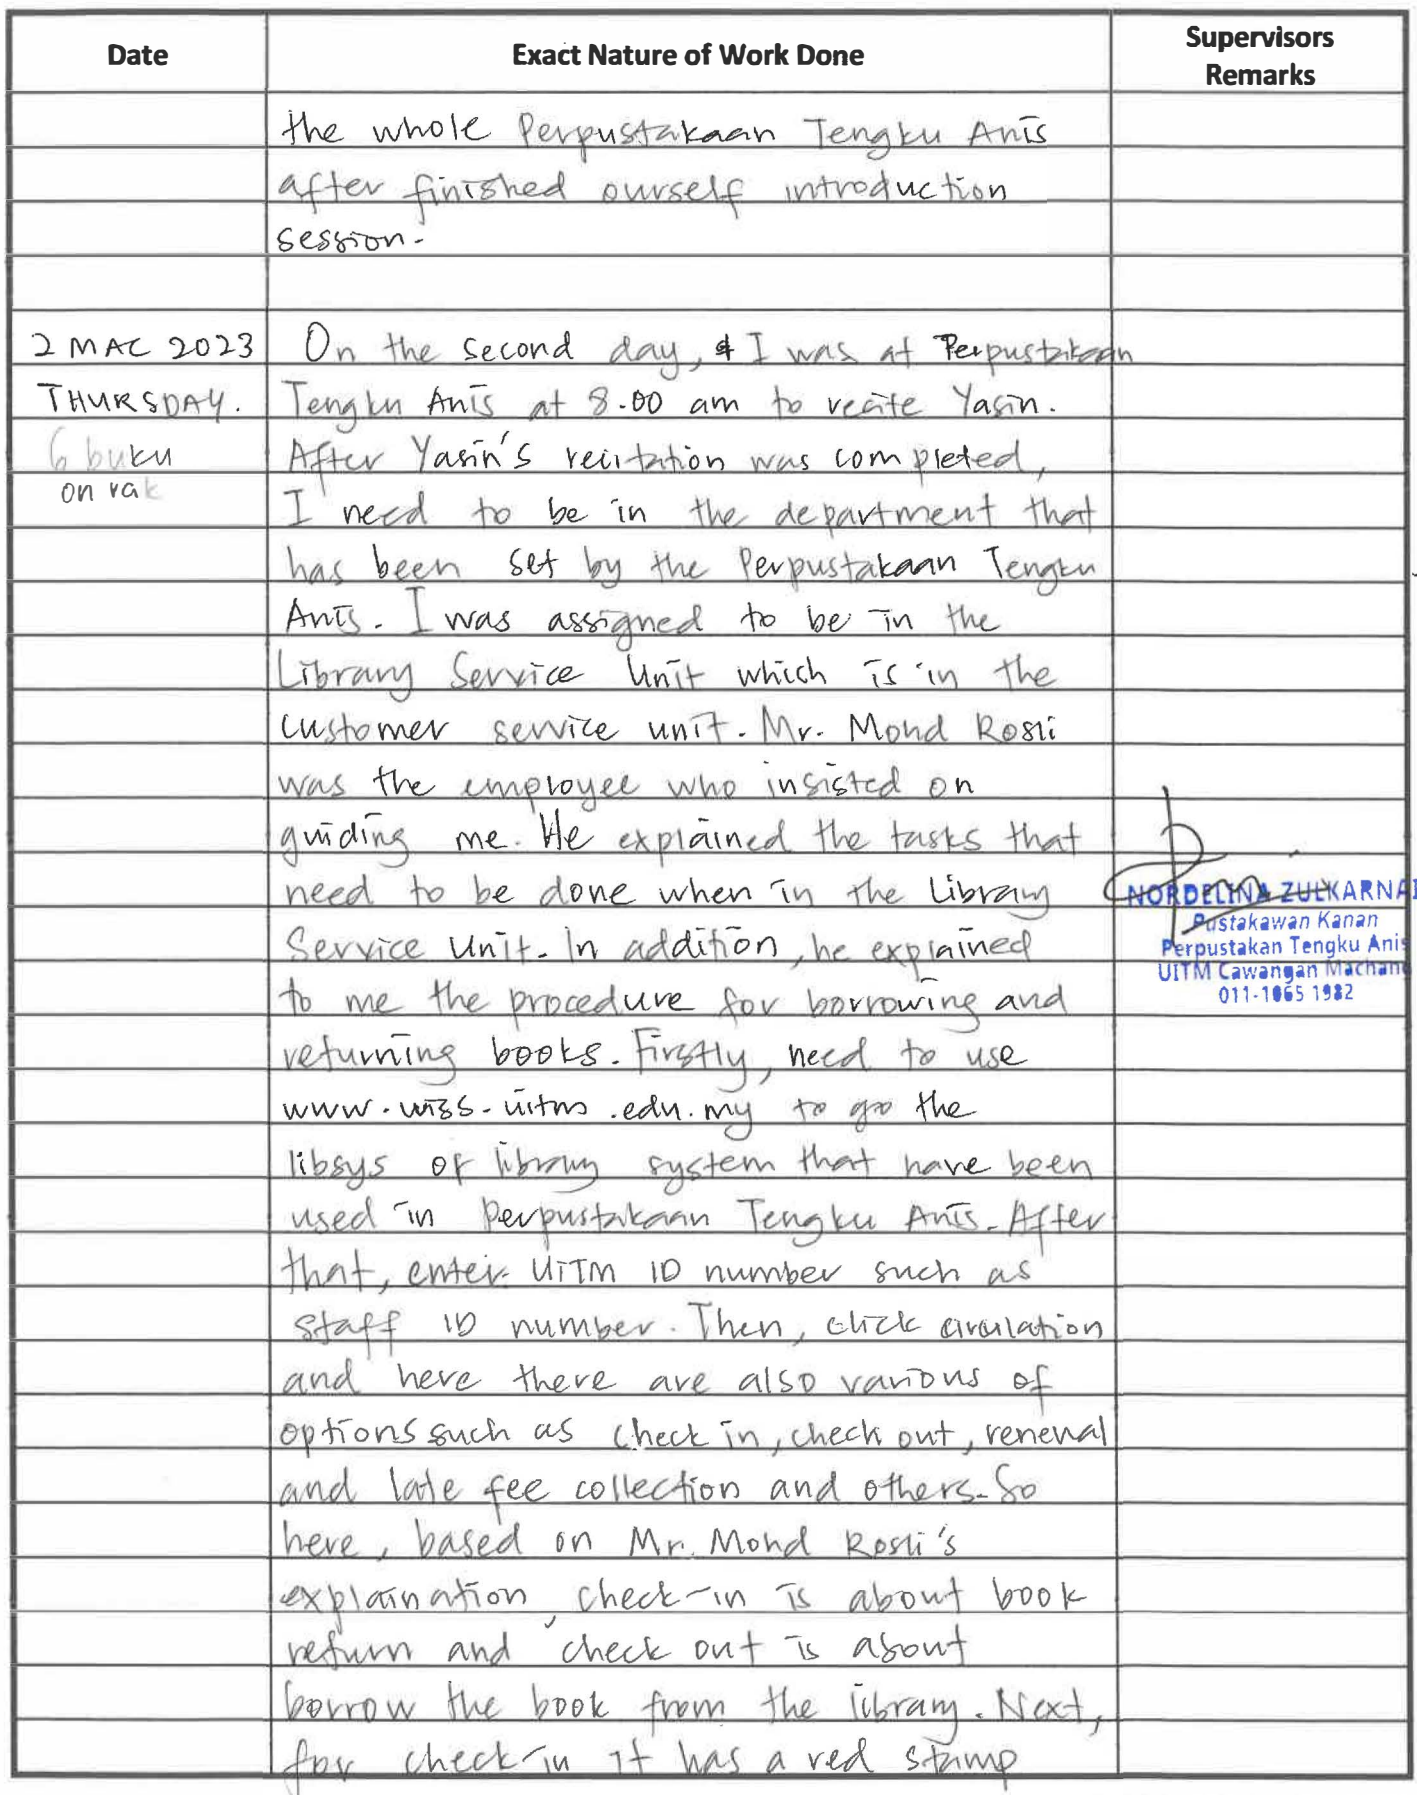 Date
Exact Nature of Work Done
Supervisors
Remarks
the whole Perpustakaan Tengku Anis
after finished ourself introduction
session.
2 MAC 2023
THURSDAY.
6 buku
on rak
On the second day, I was at Perpustakaan
Tengku Anis at 8.00 am to recite Yasin.
After Yasin's recitation was completed,
I need to be in the department that
has been set by the Perpustakaan Tengku
Anis. I was assigned to be in the
Library Service Unit which is in the
customer service unit. Mr. Mohd Rosli
was the employee who insisted on
guiding me. He explained the tasks that
need to be done when in the Library
Service Unit. In addition, he explained
to me the procedure for borrowing and
returning books. Firstly, need to use
www.wiss.uitm.edu.my to go the
libsys or library system that have been
used in Perpustakaan Tengku Anis. After
that, enter UiTM ID number such as
staff ID number. Then, click circulation
and here there are also various of
options such as check in, check out, renewal
and late fee collection and others. So
here, based on Mr. Mohd Rosli's
explaination, check-in is about book
return and check out is about
borrow the book from the library. Next,
for check-in it has a red stamp
NORDELINA ZULKARNAI
Pustakawan Kanan
Perpustakan Tengku Anis
UITM Cawangan Machang
011-1065 1982